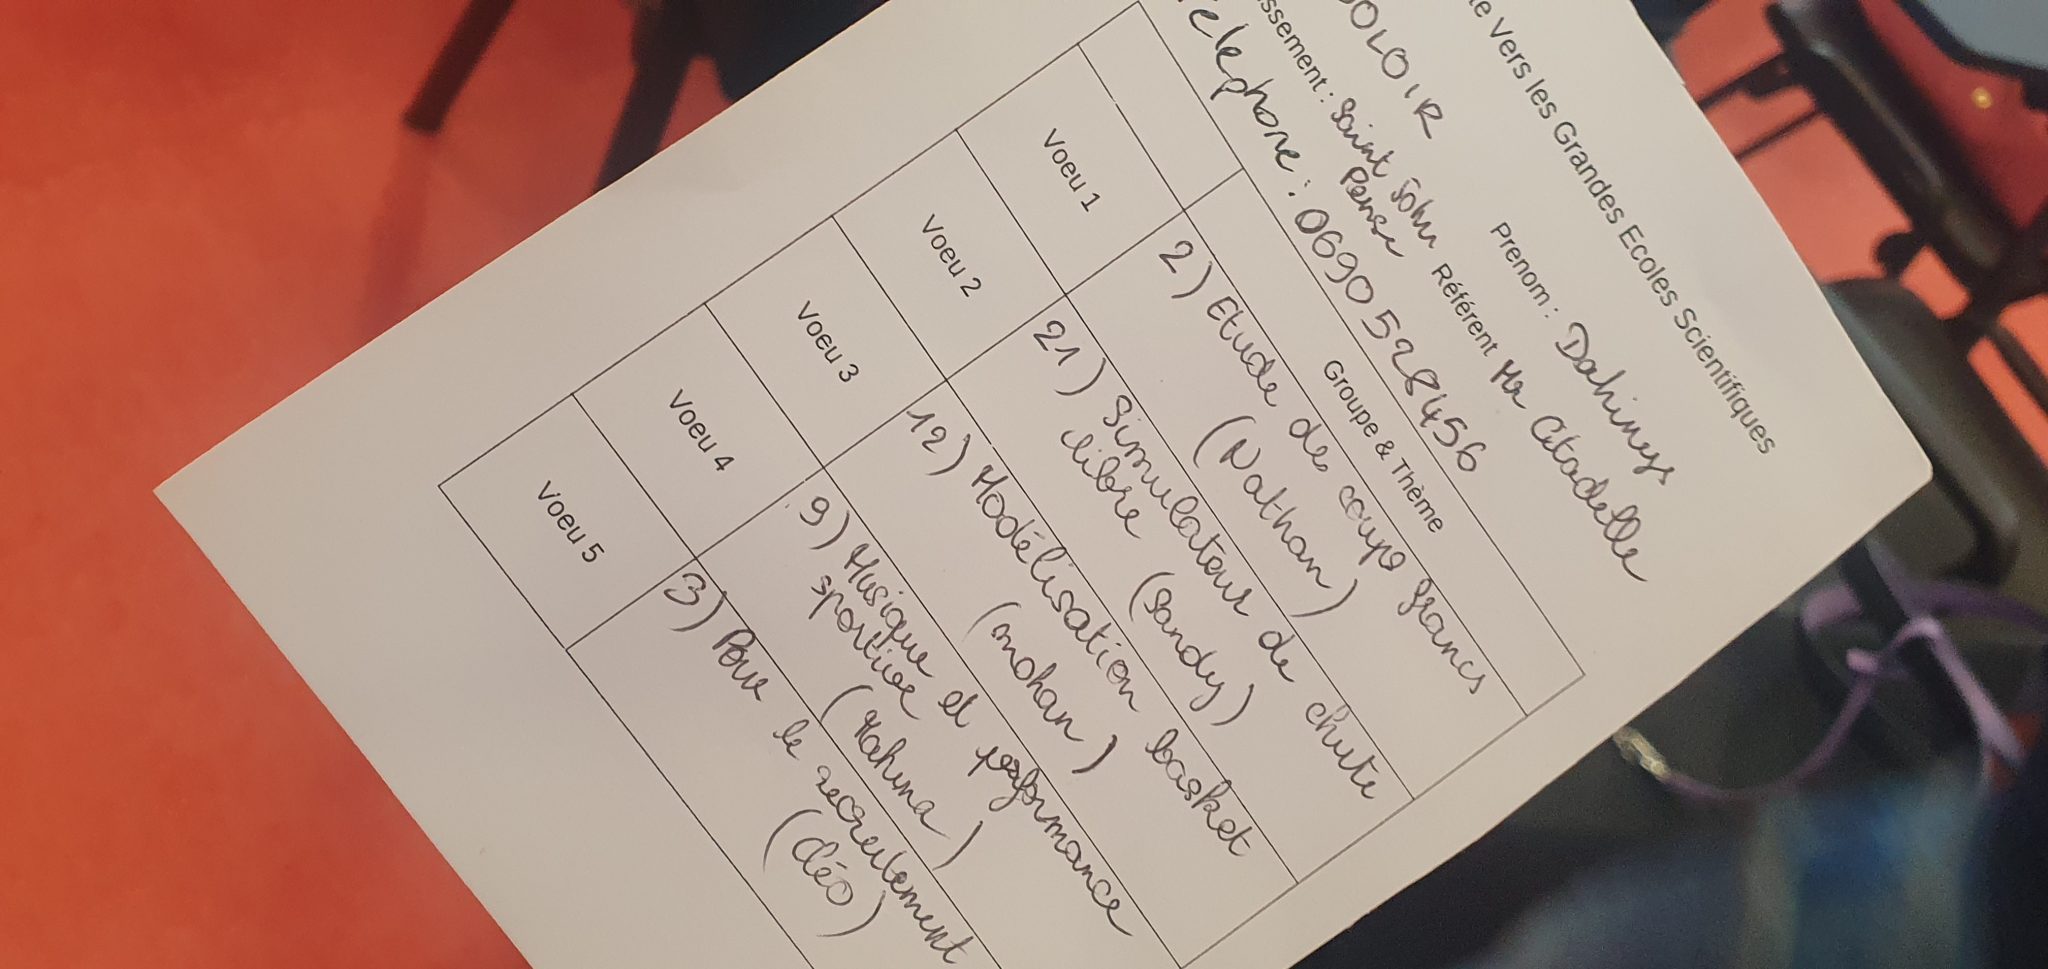 te Vers les Grandes Ecoles Scientifiques
OOLOIR Prenom : Dahinys
issement : Saint John Perse Référent Mr Citadelle
Telephone : 0690528456
Groupe & Thème
Voeu 1 2) Etude de coups francs
(Nathan)
Voeu 2 21) Simulateur de chute
libre (Sandy)
Voeu 3 12) Modélisation basket
(mohan)
Voeu 4 9) Musique et performance
sportive (Mahina)
Voeu 5 3) Pour le recrutement
(Cléo)